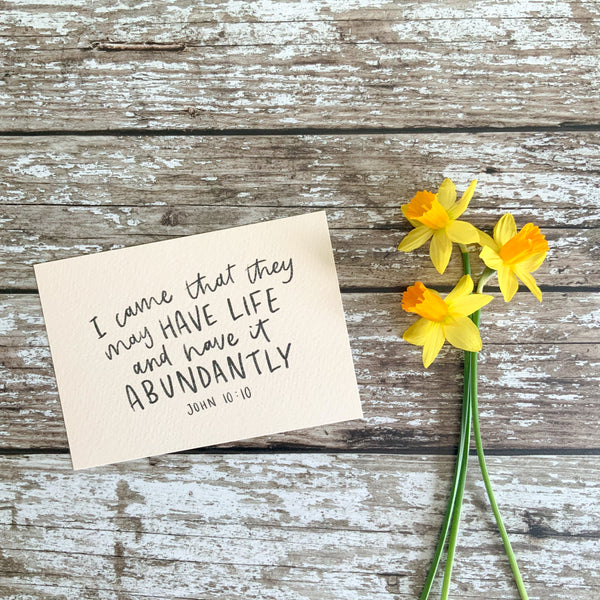 I came that they
may HAVE LIFE
and have it
ABUNDANTLY
JOHN 10:10